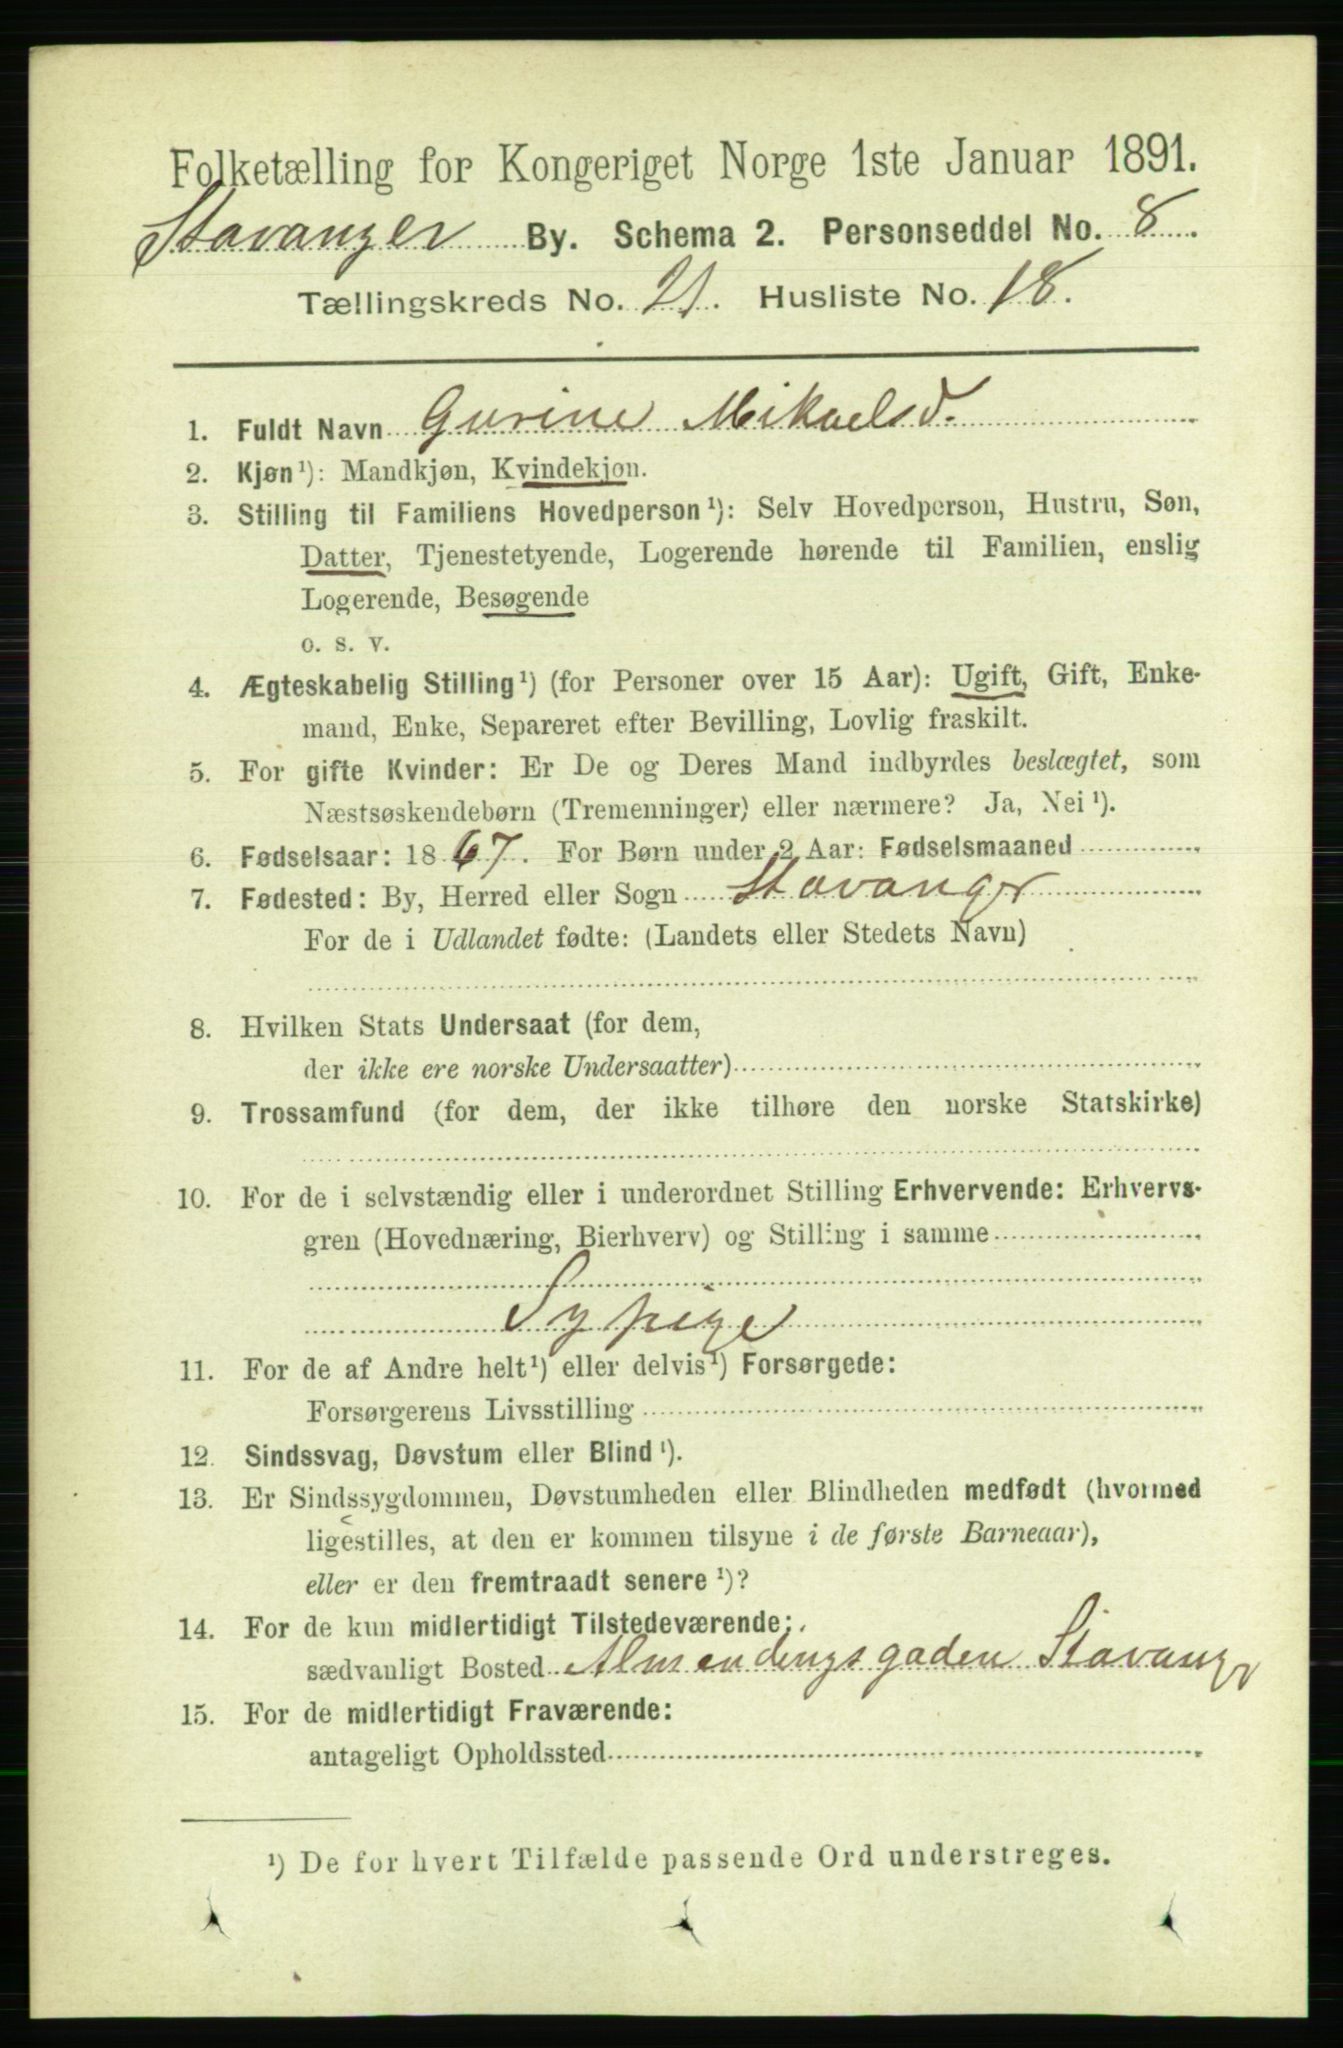 Folketælling for Kongeriget Norge 1ste Januar 1891.
Stavanger By. Schema 2. Personseddel No. 8.
Tællingskreds No. 21. Husliste No. 18.
1. Fuldt Navn Gurine Mikaelsd.
2. Kjøn ¹): Mandkjøn, Kvindekjøn.
3. Stilling til Familiens Hovedperson ¹): Selv Hovedperson, Hustru, Søn,
Datter, Tjenestetyende, Logerende hørende til Familien, enslig
Logerende, Besøgende
o. s. v.
4. Ægteskabelig Stilling ¹) (for Personer over 15 Aar): Ugift, Gift, Enke-
mand, Enke, Separeret efter Bevilling, Lovlig fraskilt.
5. For gifte Kvinder: Er De og Deres Mand indbyrdes beslægtet, som
Næstsøskendebørn (Tremenninger) eller nærmere? Ja, Nei ¹).
6. Fødselsaar: 1867. For Børn under 2 Aar: Fødselsmaaned
7. Fødested: By, Herred eller Sogn Stavanger
For de i Udlandet fødte: (Landets eller Stedets Navn)
8. Hvilken Stats Undersaat (for dem,
der ikke ere norske Undersaatter)
9. Trossamfund (for dem, der ikke tilhøre den norske Statskirke)
10. For de i selvstændig eller i underordnet Stilling Erhvervende: Erhvervs-
gren (Hovednæring, Bierhverv) og Stilling i samme
Sypige
11. For de af Andre helt ¹) eller delvis ¹) Forsørgede:
Forsørgerens Livsstilling
12. Sindssvag, Døvstum eller Blind ¹).
13. Er Sindssygdommen, Døvstumheden eller Blindheden medfødt (hvormed
ligestilles, at den er kommen tilsyne i de første Barneaar),
eller er den fremtraadt senere ¹)?
14. For de kun midlertidigt Tilstedeværende:
sædvanligt Bosted Almendingsgaden Stavanger
15. For de midlertidigt Fraværende:
antageligt Opholdssted
¹) De for hvert Tilfælde passende Ord understreges.